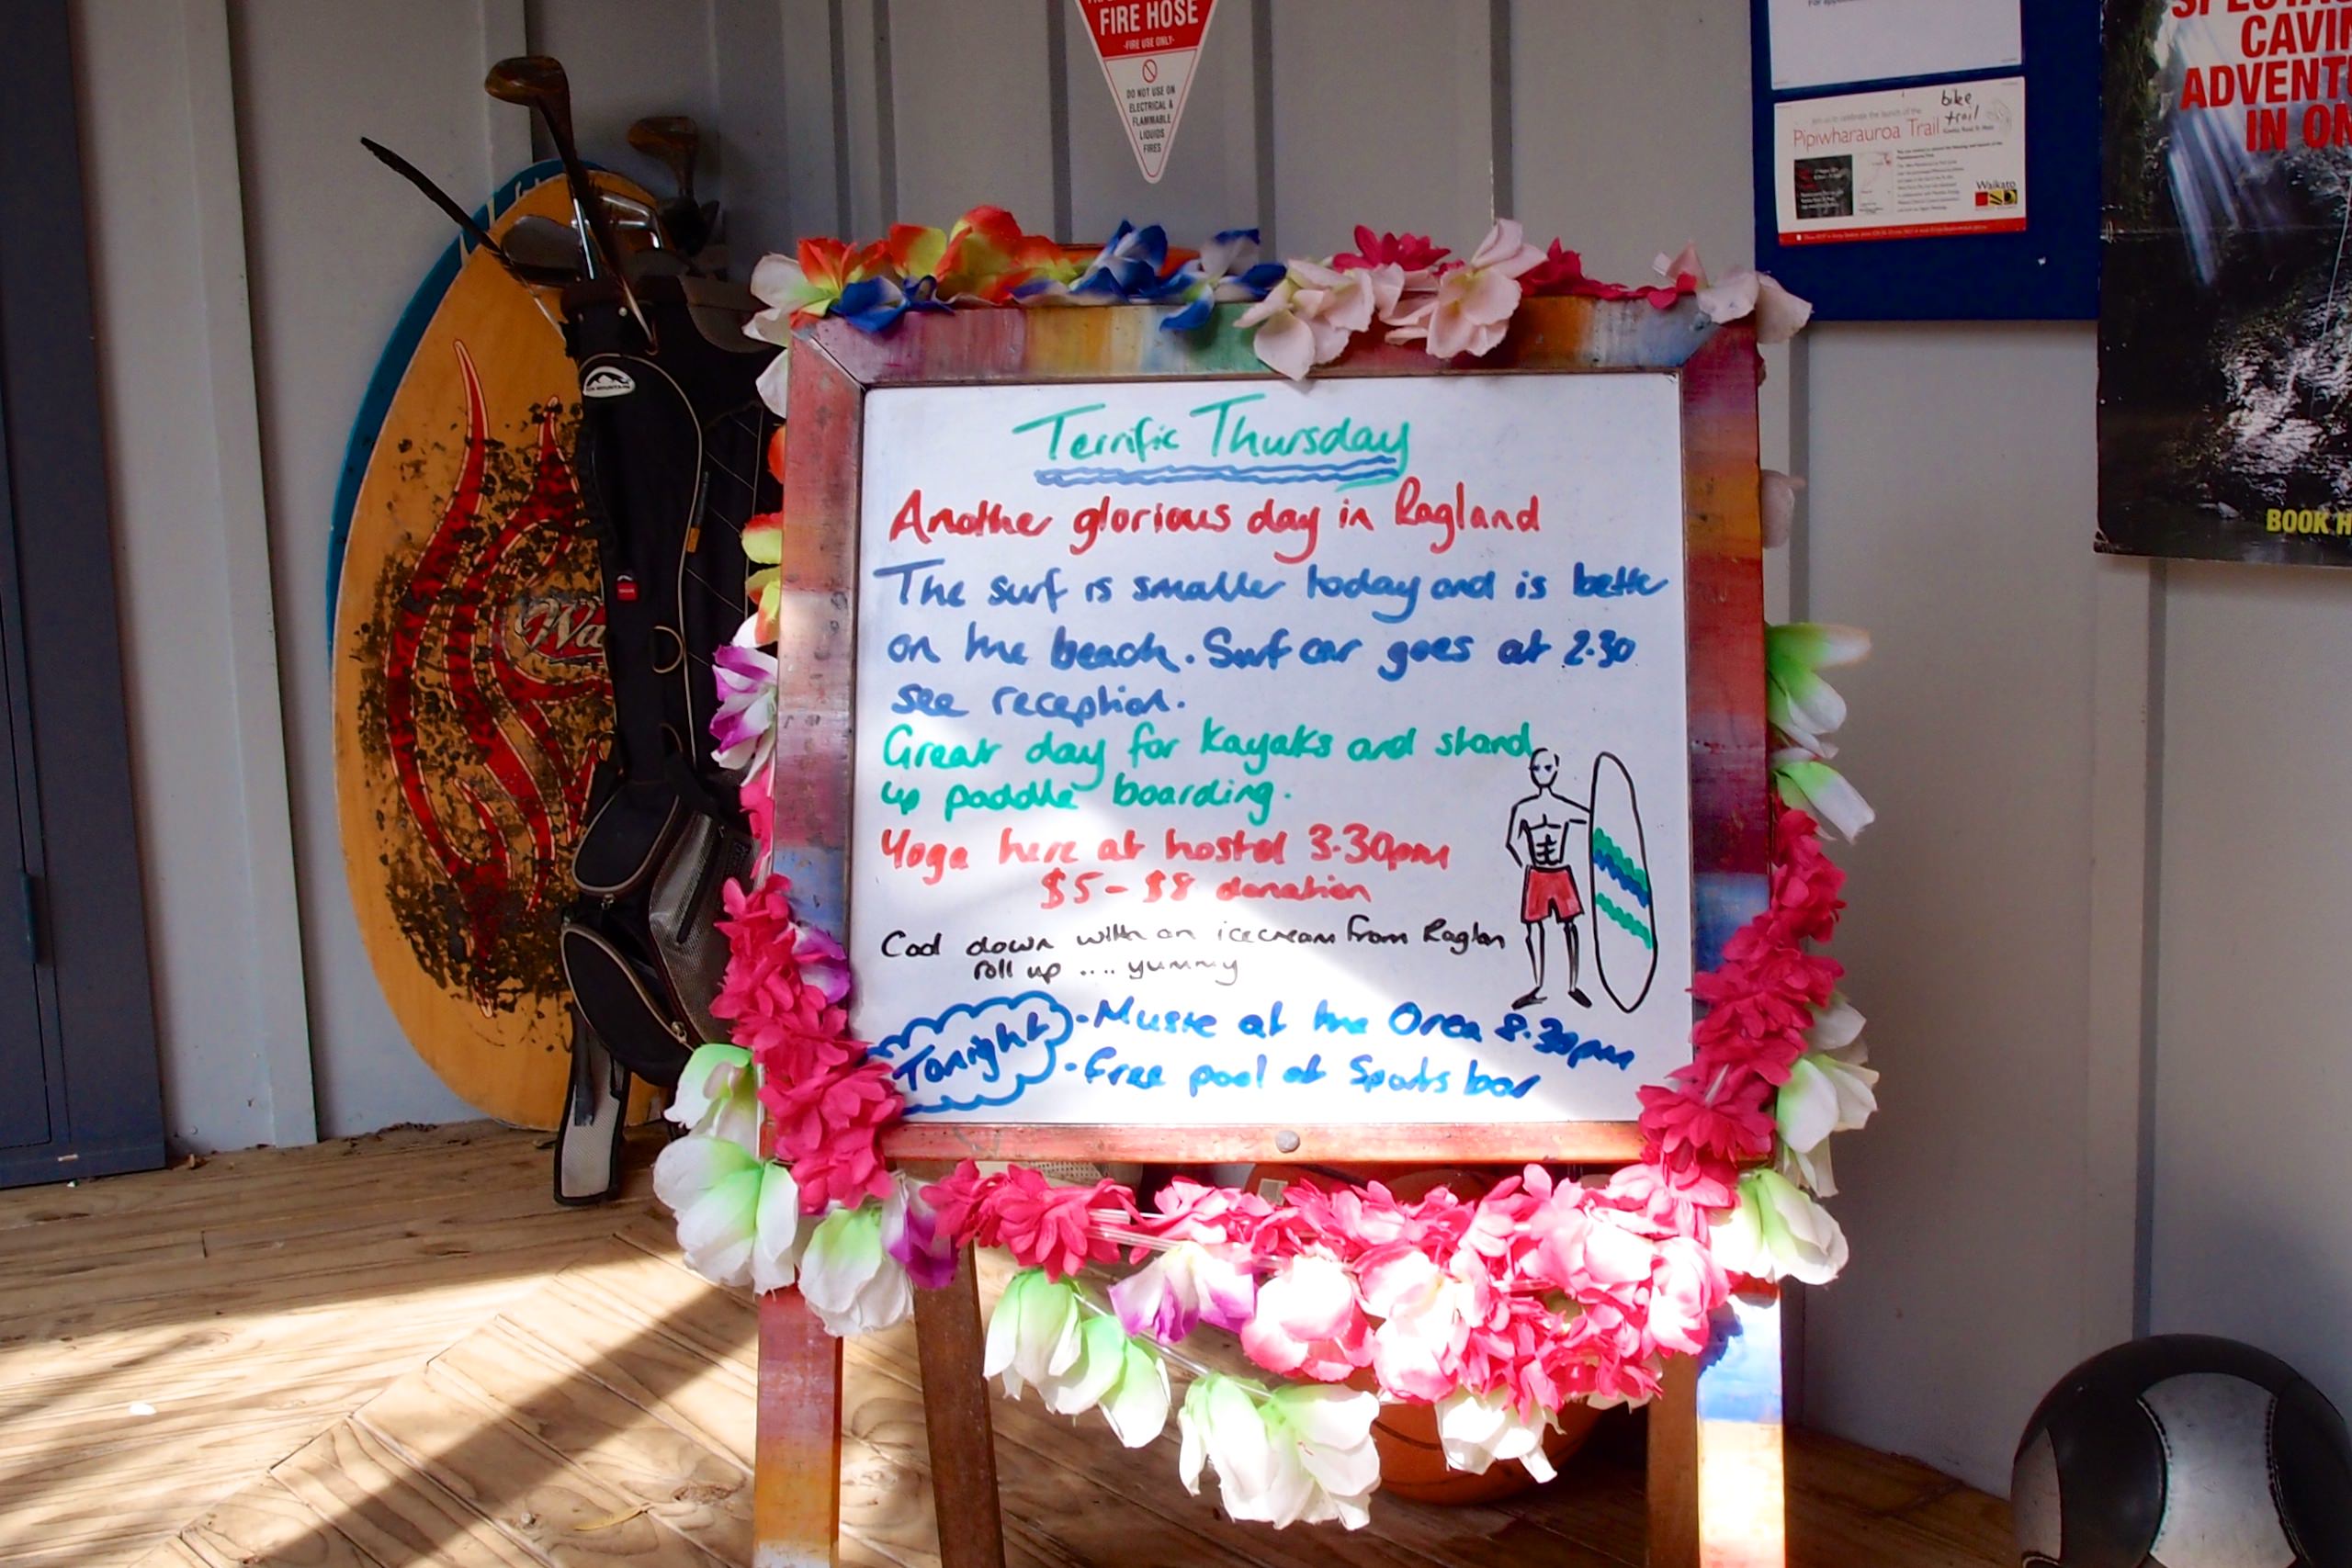 FIRE HOSE
-FIRE USE ONLY-
DO NOT USE ON
ELECTRICAL &
FLAMMABLE
LIQUIDS
FIRES
bike
trail
Pipiwharauroa Trail
Waikato
CAVIN
ADVENT
IN ON
BOOK H
Wa
Terrific Thursday
Another glorious day in Ragland
The surf is smaller today and is better
on the beach. Surf car goes at 2.30
see reception.
Great day for kayaks and stand
up paddle boarding.
Yoga here at hostel 3.30pm
$5 - $8 donation
Cool down with an icecream from Raglan
roll up .... yummy
Tonight
- Music at the Orca 8.30pm
- Free pool at Sports bar